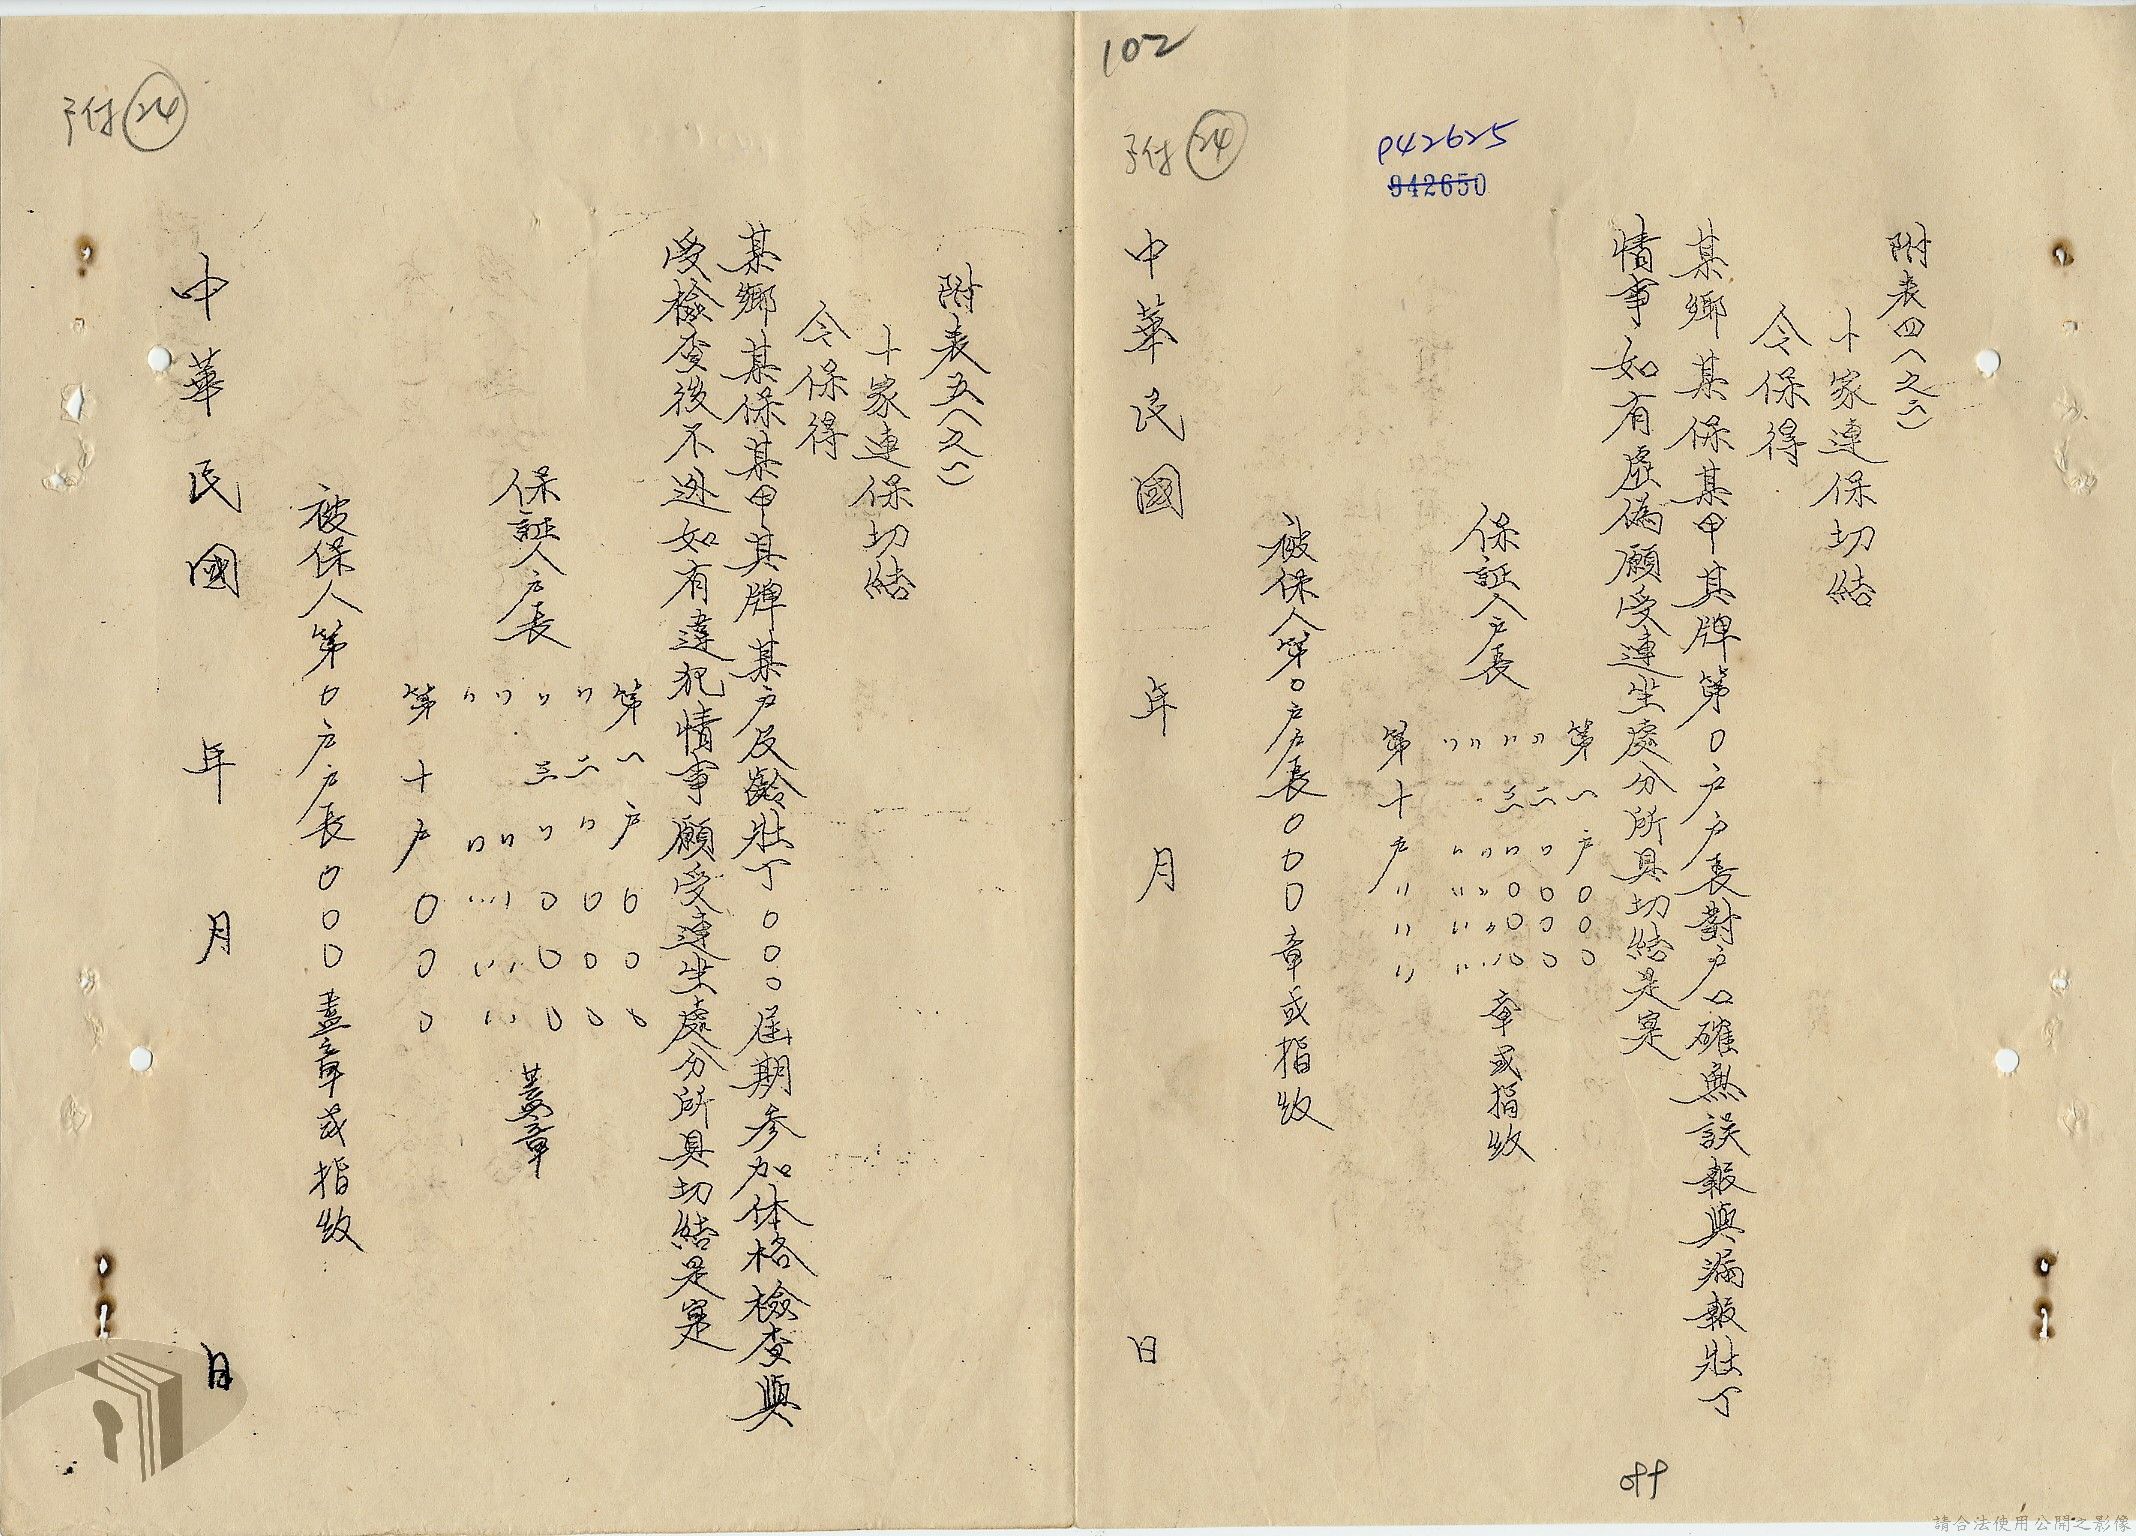 102
附 24
042625
942650
附表四(之二)
十家連保切結
令保得
某鄉某保某甲某牌第〇戶戶長對戶口確無誤報與漏報壯丁
情事如有虛偽願受連坐處分所具切結是寔
第一戶〇〇〇
〃二〃〇〇〇
〃三〃〇〇〇
保証人戶長
章或指紋
第十戶〃〃〃
被保人第〇戶戶長〇〇〇章或指紋
中華民國 年 月 日
附 24
附表五(之一)
十家連保切結
令保得
某鄉某保某甲某牌某戶及齡壯丁〇〇〇屆期參加体格檢查與
受檢查後不逃如有違犯情事願受連坐處分所具切結是寔
第一戶〇〇〇
〃二〃〇〇〇
〃三〃〇〇〇
保証人戶長
蓋章
第十戶〇〇〇
被保人第〇戶戶長〇〇〇蓋章或指紋
中華民國 年 月 日
請合法使用公開之影像